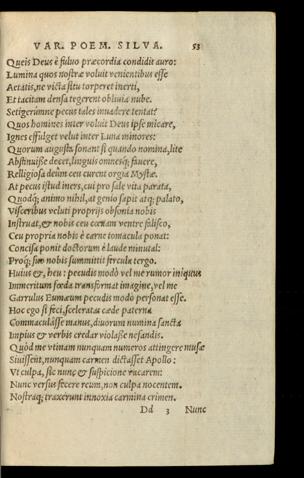 VAR. POEM. SILVA. 53
Queis Deus è fuluo præcordia condidit auro:
Lumina quos nostræ voluit venientibus esse
Aetatis, ne victa situ torperet inerti,
Et tacitam densa tegerent obliuia nube.
Setigerumne pecus tales inuadere tentat?
Quos homines inter voluit Deus ipse micare,
Ignes effulget velut inter Luna minores:
Quorum augusta sonant si quando nomina, lite
Abstinuisse decet, linguis omnesq; fauere,
Relligiosa deûm ceu curent orgia Mystæ.
At pecus istud iners, cui pro sale vita parata,
Quodq; animo nihil, at genio sapit atq; palato,
Visceribus veluti proprijs obsonia nobis
Instruat, & nobis ceu cœnam ventre falisco,
Ceu propria nobis è carne tomacula ponat:
Concisa ponit doctorum è laude minutal:
Proq; suo nobis summittit fercula tergo.
Huius &, heu: pecudis modò vel me rumor iniquus
Immeritum fœda transformat imagine, vel me
Garrulus Eumæum pecudis modò personat esse.
Hoc ego si feci, sceleratæ cæde paterna
Commaculasse manus, diuorum numina sancta
Impius & verbis credar violasse nefandis.
Quòd me vtinam nunquam numeros attingere musæ
Siuissent, nunquam carmen dictasset Apollo:
Vt culpa, sic nunc & suspicione vacarem:
Nunc versus fecere reum, non culpa nocentem.
Nostraq; traxerunt innoxia carmina crimen.
Dd 3 Nunc